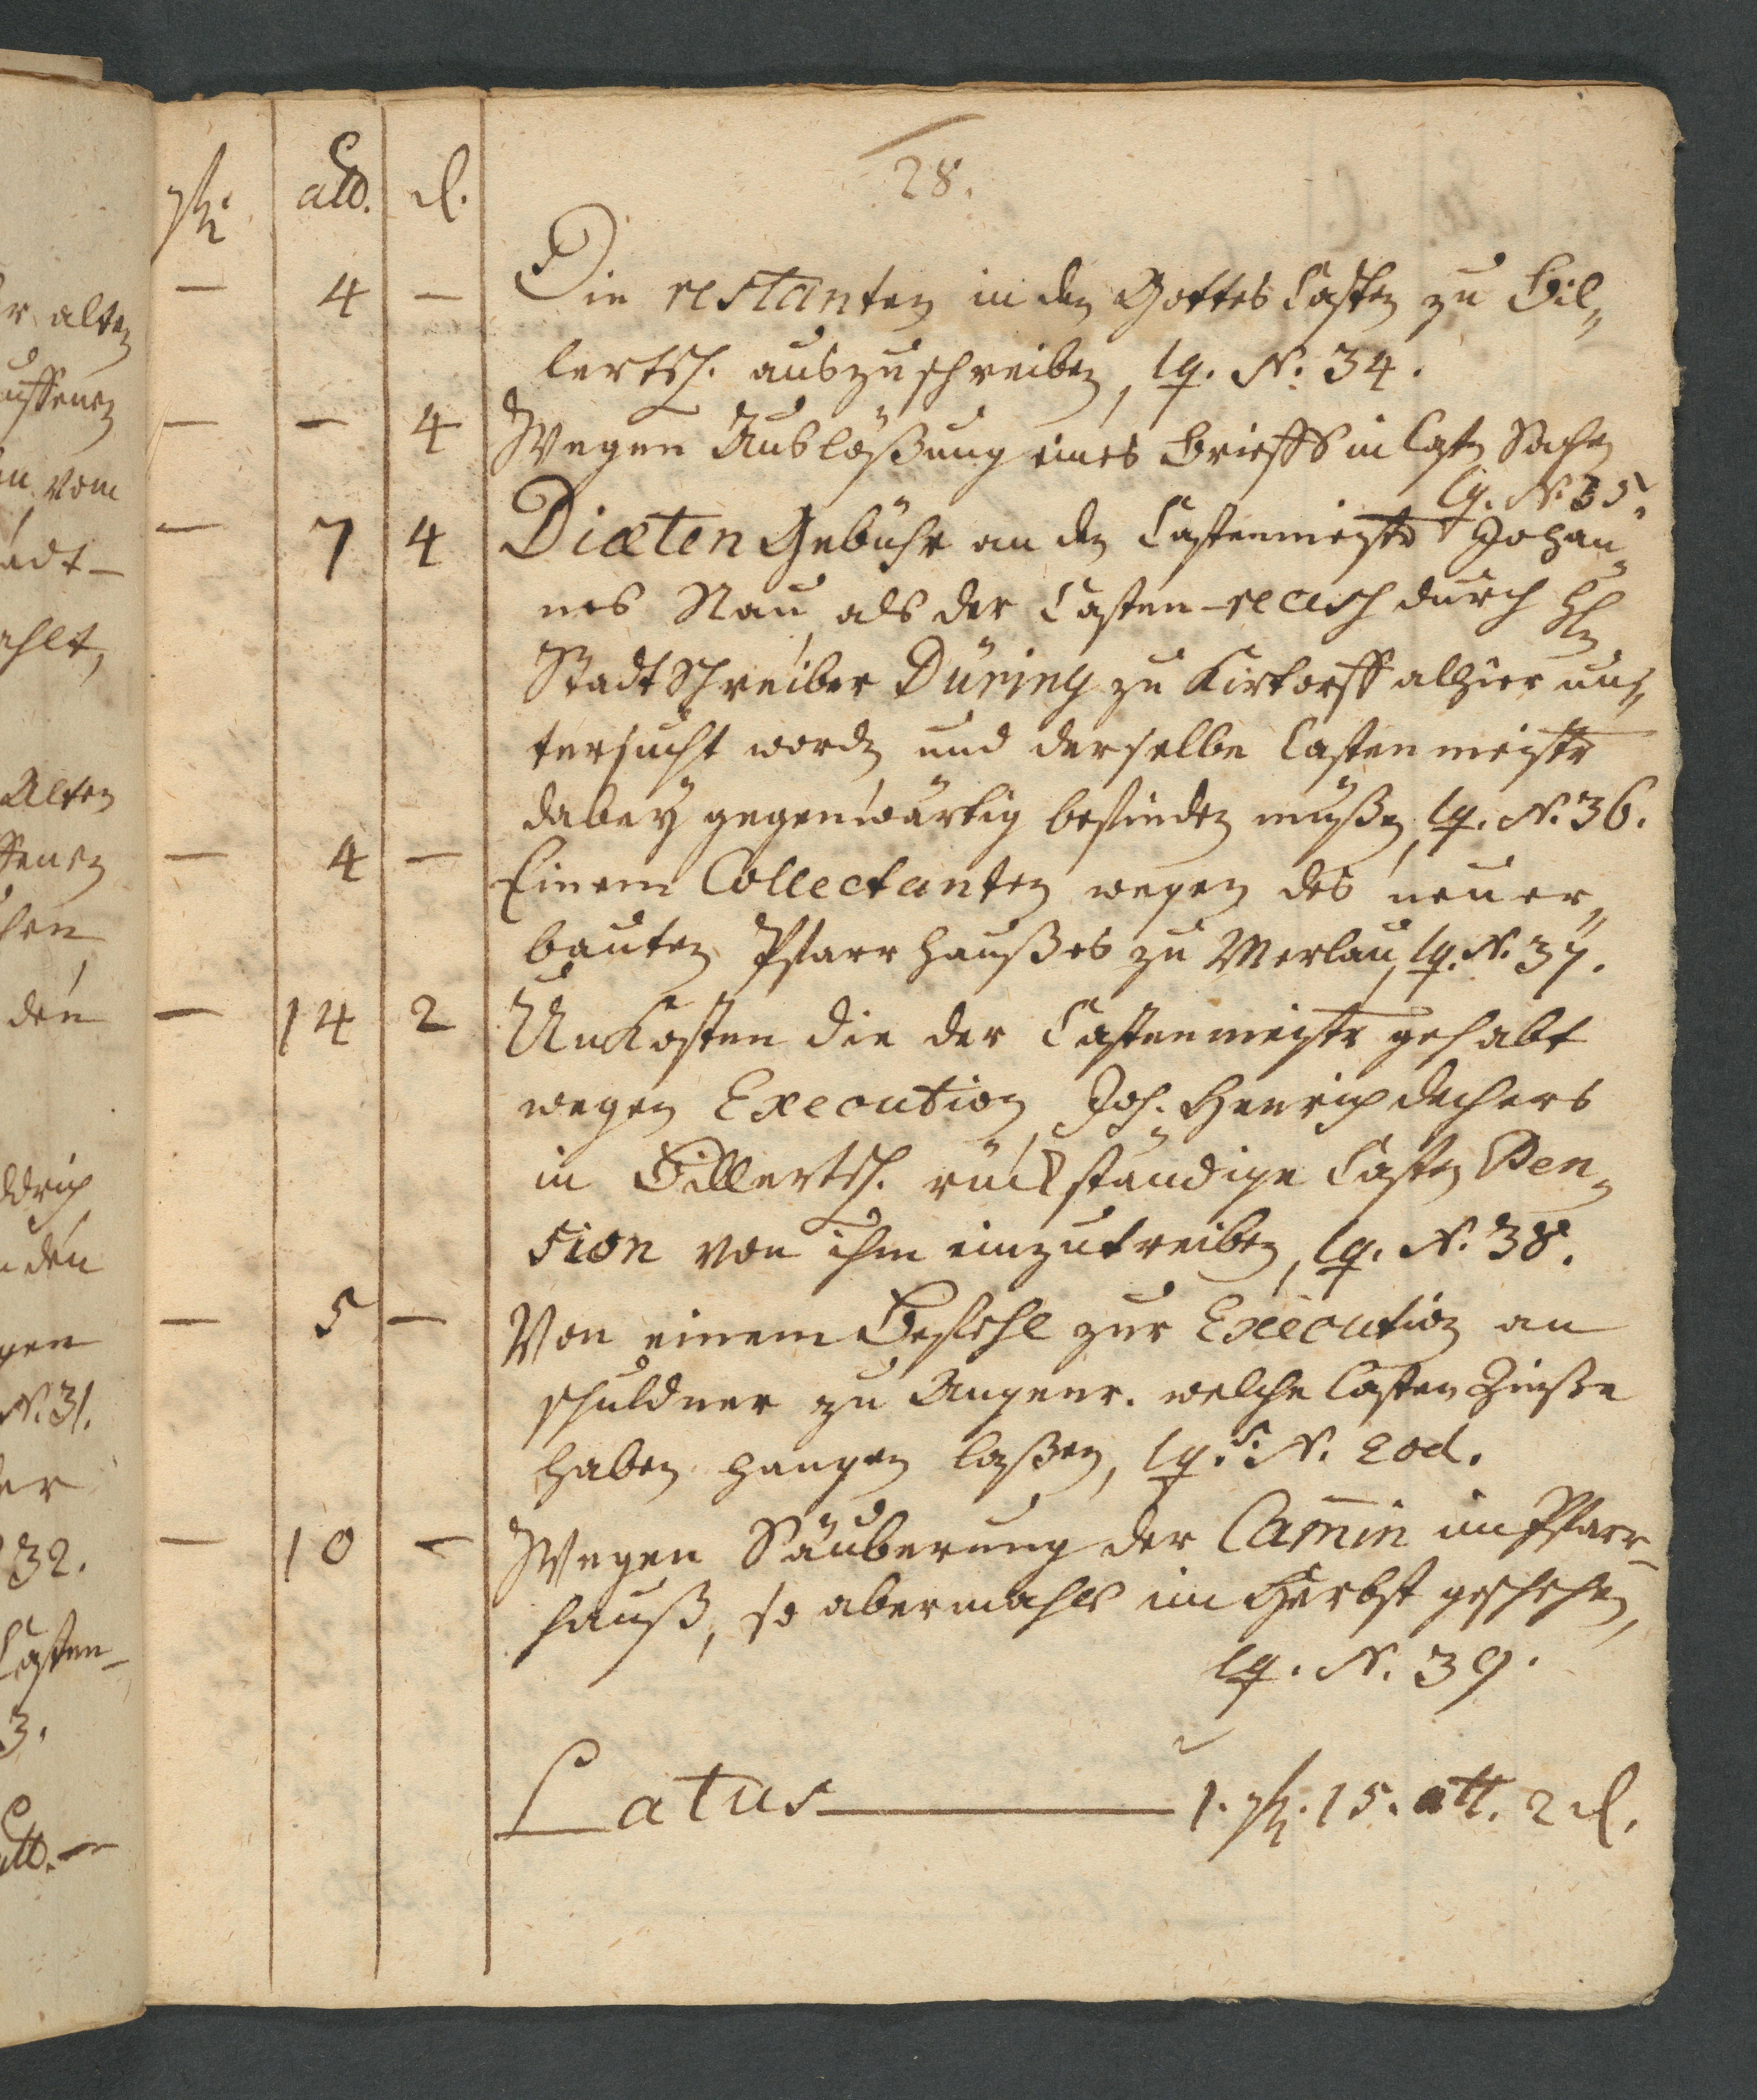 28.
rh. alb. d.
— 4 — Die restanten in den Gottes Casten zu Bil„
lertsh. auszuschreiben, lq. N. 34.
— — 4 Wegen Auslößung eines Brieffs in Castn Sachen
lq. N. 35.
— 7 4 Diæten Gebühr an den Castenmeistr Johan„
nes Nau, als der Casten-recesh durch Hln
Stadtschreiber Düring zu Kirtorff alhier un„
tersucht worden und derselbe Castenmeistr
dabey gegenwärtig befinden müßen, lq. N. 36.
— 4 — Einem Collectanten wegen des neuer„
bauten Pfarrhaußes zu Merlau, lq. N. 37.
— 14 2 Unkosten die der Castenmeistr gehabt
wegen Execution, Joh. Henrich Dechers
in Billertsh. rückständige Casten Pen„
sion von ihm einzutreiben, lq. N. 38.
— 5 — Von einem Befehl zur Execution an
schuldner zu Angenr. welche Casten Zinße
haben hangen laßen, lq. s. N. eod.
— 10 — Wegen Säuberung der Camin im Pfarr-
hauß, so abermahls im Herbst geschehen,
lq. N. 39.
Latus — 1. rh. 15. alb. 2 d.